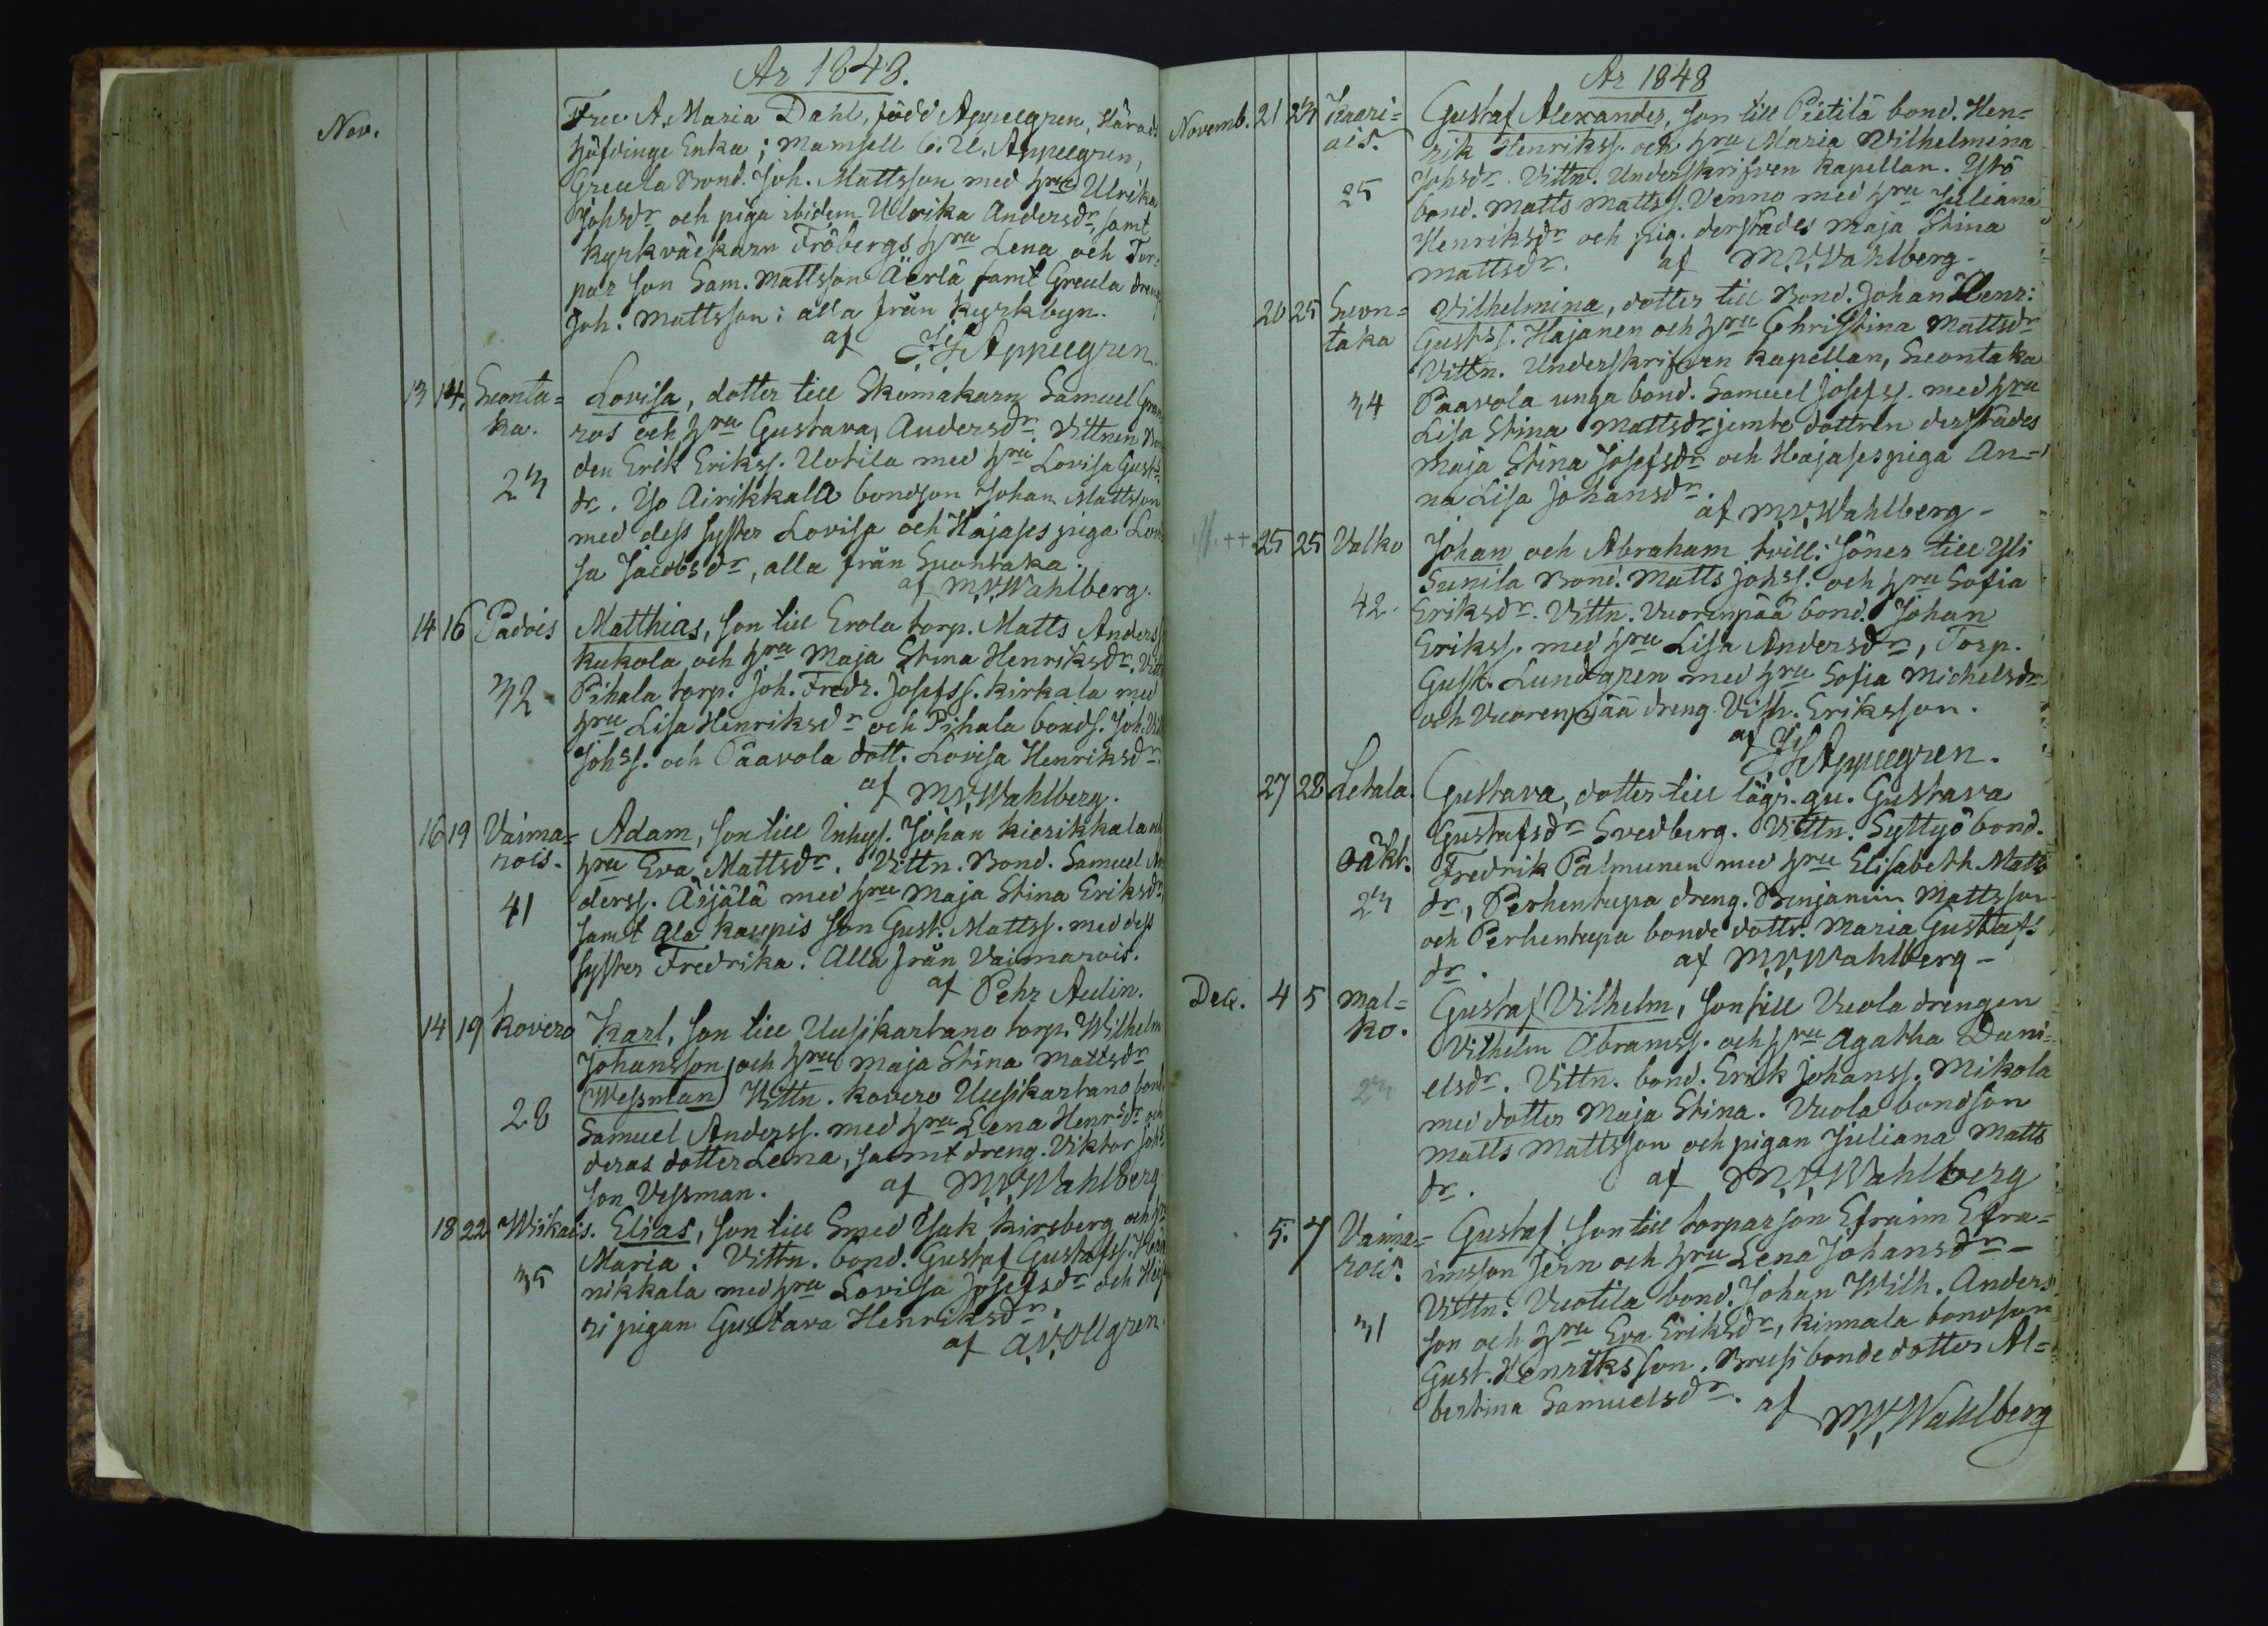 År 1848.
Nov.
Fru A. Maria Dahl, född Appelgren, Härads
höfdinge Enka; Mamsell C. U. Appelgren,
Greula Bond. Joh. Mattsson med hru Ulrika
Johsdr och piga ibidem Ulrika Andersdr, samt
kyrkväckarn Fröbergs hru Lena och Tor-
par son Sam. Mattsson Äerlä samt Greula dreng
Joh. Mattsson; alla från kyrkbyn.
af Appelgren.
13 14. Suonta=
ka.
23
Lovisa, dotter till Skomakarn Samuel Gran
ros och hru Gustava Andersdr. Vittnen Bon
den Erik Erikss. Uotila med hru Lovisa Gusts
dr. Iso Airikkala bondson Johan Mattsson
med dess syster Lovisa och Hajases piga Lovi
sa Jacobsdr, alla från Suontaka.
af M. V. Wahlberg.
14 16 Padois
32
Matthias, son till Erola torp. Matts Anderss.
Kukola och hru Maja Stina Henriksdr. Vittn
Pihala torp. Joh. Fredr. Josefss. Kirkala med
hru Lisa Henriksdr och Pihala bonds. Joh. Vilh
Johss. och Paavola dott. Lovisa Henriksdr.
af M. V. Wahlberg.
16 19 Vaima=
rois.
41
Adam, son till Inhys. Johan Kierikkala och
hru Eva Mattsdr. Vittn. Bond. Samuel An
derss. Äijälä med hru Maja Stina Eriksdr,
samt Ala Kaupis son Gust. Mattss. med dess
syster Fredrika. Alla från Vaimarois.
af Pehr Aulin.
14 19 Kovero
28
Karl, son till Uusikartano torp. Wilhelm
Johansson och hru Maja Stina Mattsdr
(Wessman) Vittn. Kovero Uusikartano bond
Samuel Anderss. med hru Lena Henrsdr och
deras dotter Lena, samt dreng. Viktor Johs
son Vessman. af M. V. Wahlberg
18 22 Wiikais.
35
Elias, son till Smed Isak Kirsberg och hru
Maria. Vittn. bond. Gustaf Gustafss.
nikkala med hru Lovisa Josefsdr och
ri pigan Gustava Henriksdr.
af A. V. Ollgren
År 1848
Novemb. 21 23 Kaari=
ais.
25
Gustaf Alexander, son till Pietilä bond. Hen=
rik Henrikss. och hru Maria Wilhelmina
Johsdr. Vittn. Underskrifven Kapellan. Ylö
bond. Matts Mattss. Venno med hru Juliana
Henriksdr och pig. derstädes Maja Stina
Mattsdr. af M. V. Wahlberg.
20 25 Suon=
taka
34
Vilhelmina, dotter till Bond. Johan Henr:
Gustss. Hajanen och hru Christina Mattsdr
Vittn. Underskrifven Kapellan, Suontaka
Paavola unga bond. Samuel Josefss. med hru
Lisa Stina Mattsdr jemte dottren derstädes
Maja Stina Josefsdr och Hajases piga An=
na Lisa Johansdr.
af M. V. Wahlberg-
++ 25 25 Valko
42.
Johan och Abraham tvill: Söner till Yli
Sunila Bond. Matts Johss. och hru Sofia
Eriksdr. Vittn. Vuorenpää bond. Johan
Erikss. med hru Lisa Andersdr, Torp.
Gust. Lundgren med hru Sofia Michelsdr
och Vuorenpää dreng Vilh. Eriksson.
af Appelgren.
27 28 Letala.
oäkt.
23
Gustava, dotter till lägr. qu. Gustava
Gustafsdr Svedberg. Vittn. Syttyö bond.
Fredrik Palmunen med hru Elisabeth Matts
dr, Perhentupa dreng. Benjamin Mattsson
och Perhentupa bonde dottr. Maria Gustafs
dr. af M. V. Wahlberg-
Dec. 4 5 Mal=
ko.
23
Gustaf Vilhelm, son till Vuola drengen
Vilhelm Abramss. och hru Agatha Dani=
elsdr. Vittn. bond. Erik Johanss. Mikola
med dotter Maja Stina. Vuola bondson
Matts Mattsson och pigan Juliana Matts
dr. af M. V. Wahlberg
5. 7 Vaima=
rois.
31
Gustaf son till torparson Efraim Efra=
imsson Jern och hru Lena Johansdr-
Vittn. Vuotila bond. Johan Wilh. Anders
son och hru Eva Eriksdr, Kinnala bondson
Gust. Henriksson. Brusi bondedotter Al=
bertina Samuelsdr. af M. V. Wahlberg